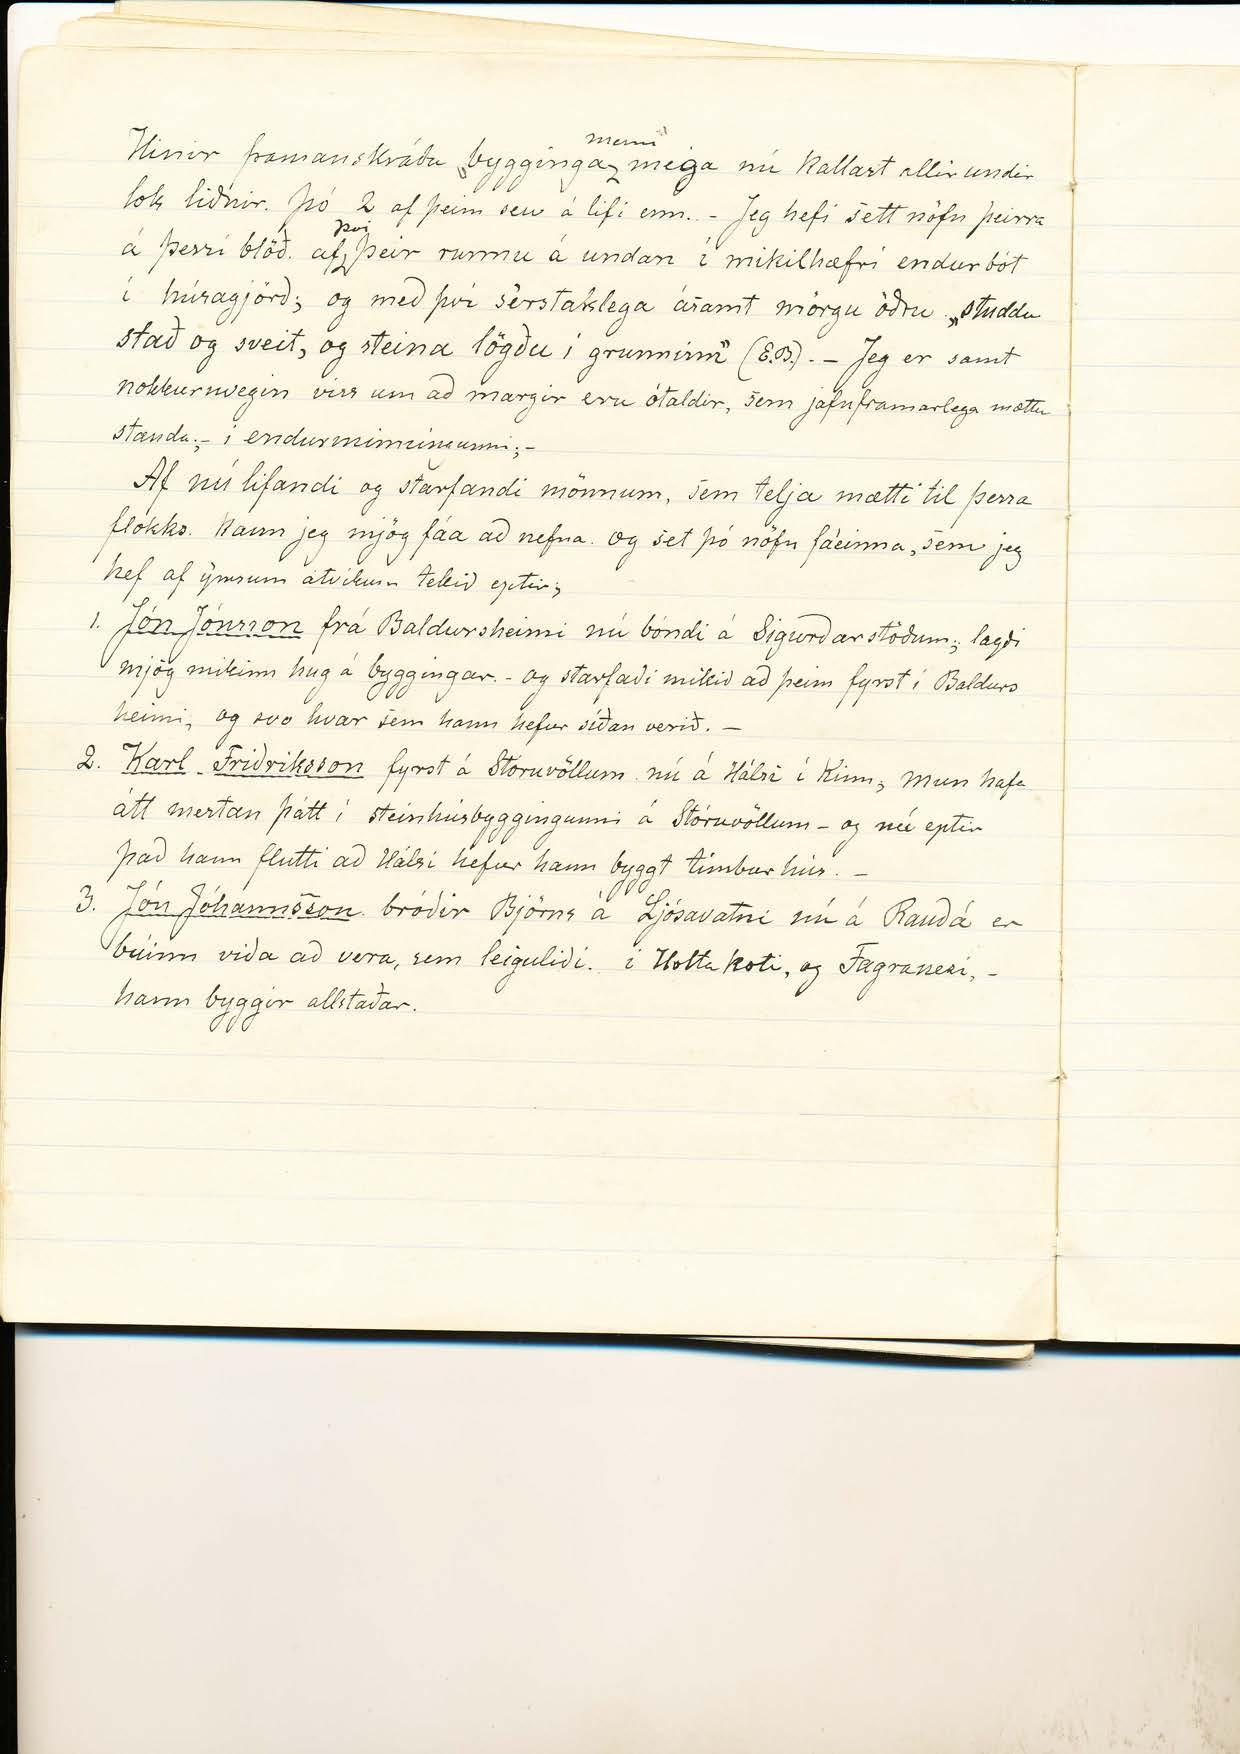 Hinir framanskráðu „bygginga menn“ meiga nú kallast allir undir
lok liðnir. Þó 2 af þeim séu á lífi enn. - Jeg hefi sett nöfn þeirra
á þessi blöð. af því þeir runnu á undan í mikilhæfri endurbót
í húsagjörð; og með því sérstaklega ásamt mörgu öðru „studdu
stað og sveit, og steina lögðu í grunninn“ (E.B.). - Jeg er samt
nokkurnvegin viss um að margir eru ótaldir, sem jafnframarlega mættu
standa; - í endurminningunni; -
Af nú lifandi og starfandi mönnum, sem telja mætti til þessa
flokks. kann jeg mjög fáa að nefna. og set þó nöfn fáeinna, sem jeg
hef af ýmsum atvikum tekið eptir;
1. Jón Jónsson frá Baldursheimi nú bóndi á Sigurðarstöðum; lagði
mjög mikinn hug á byggingar. - og starfaði mikið að þeim fyrst í Baldurs
heimi, og svo hvar sem hann hefur síðan verið. -
2. Karl Friðriksson fyrst á Stóruvöllum nú á Hálsi í Kinn; mun hafa
átt mestan þátt í steinhúsbyggingunni á Stóruvöllum - og nú eptir
það hann flutti að Hálsi hefur hann byggt timburhús. -
3. Jón Jóhannsson. bróðir Björns á Ljósavatni nú á Rauðá er
búinn viða að vera, sem leiguliði. í Holtakoti, og Fagranesi, -
hann byggir allstaðar.